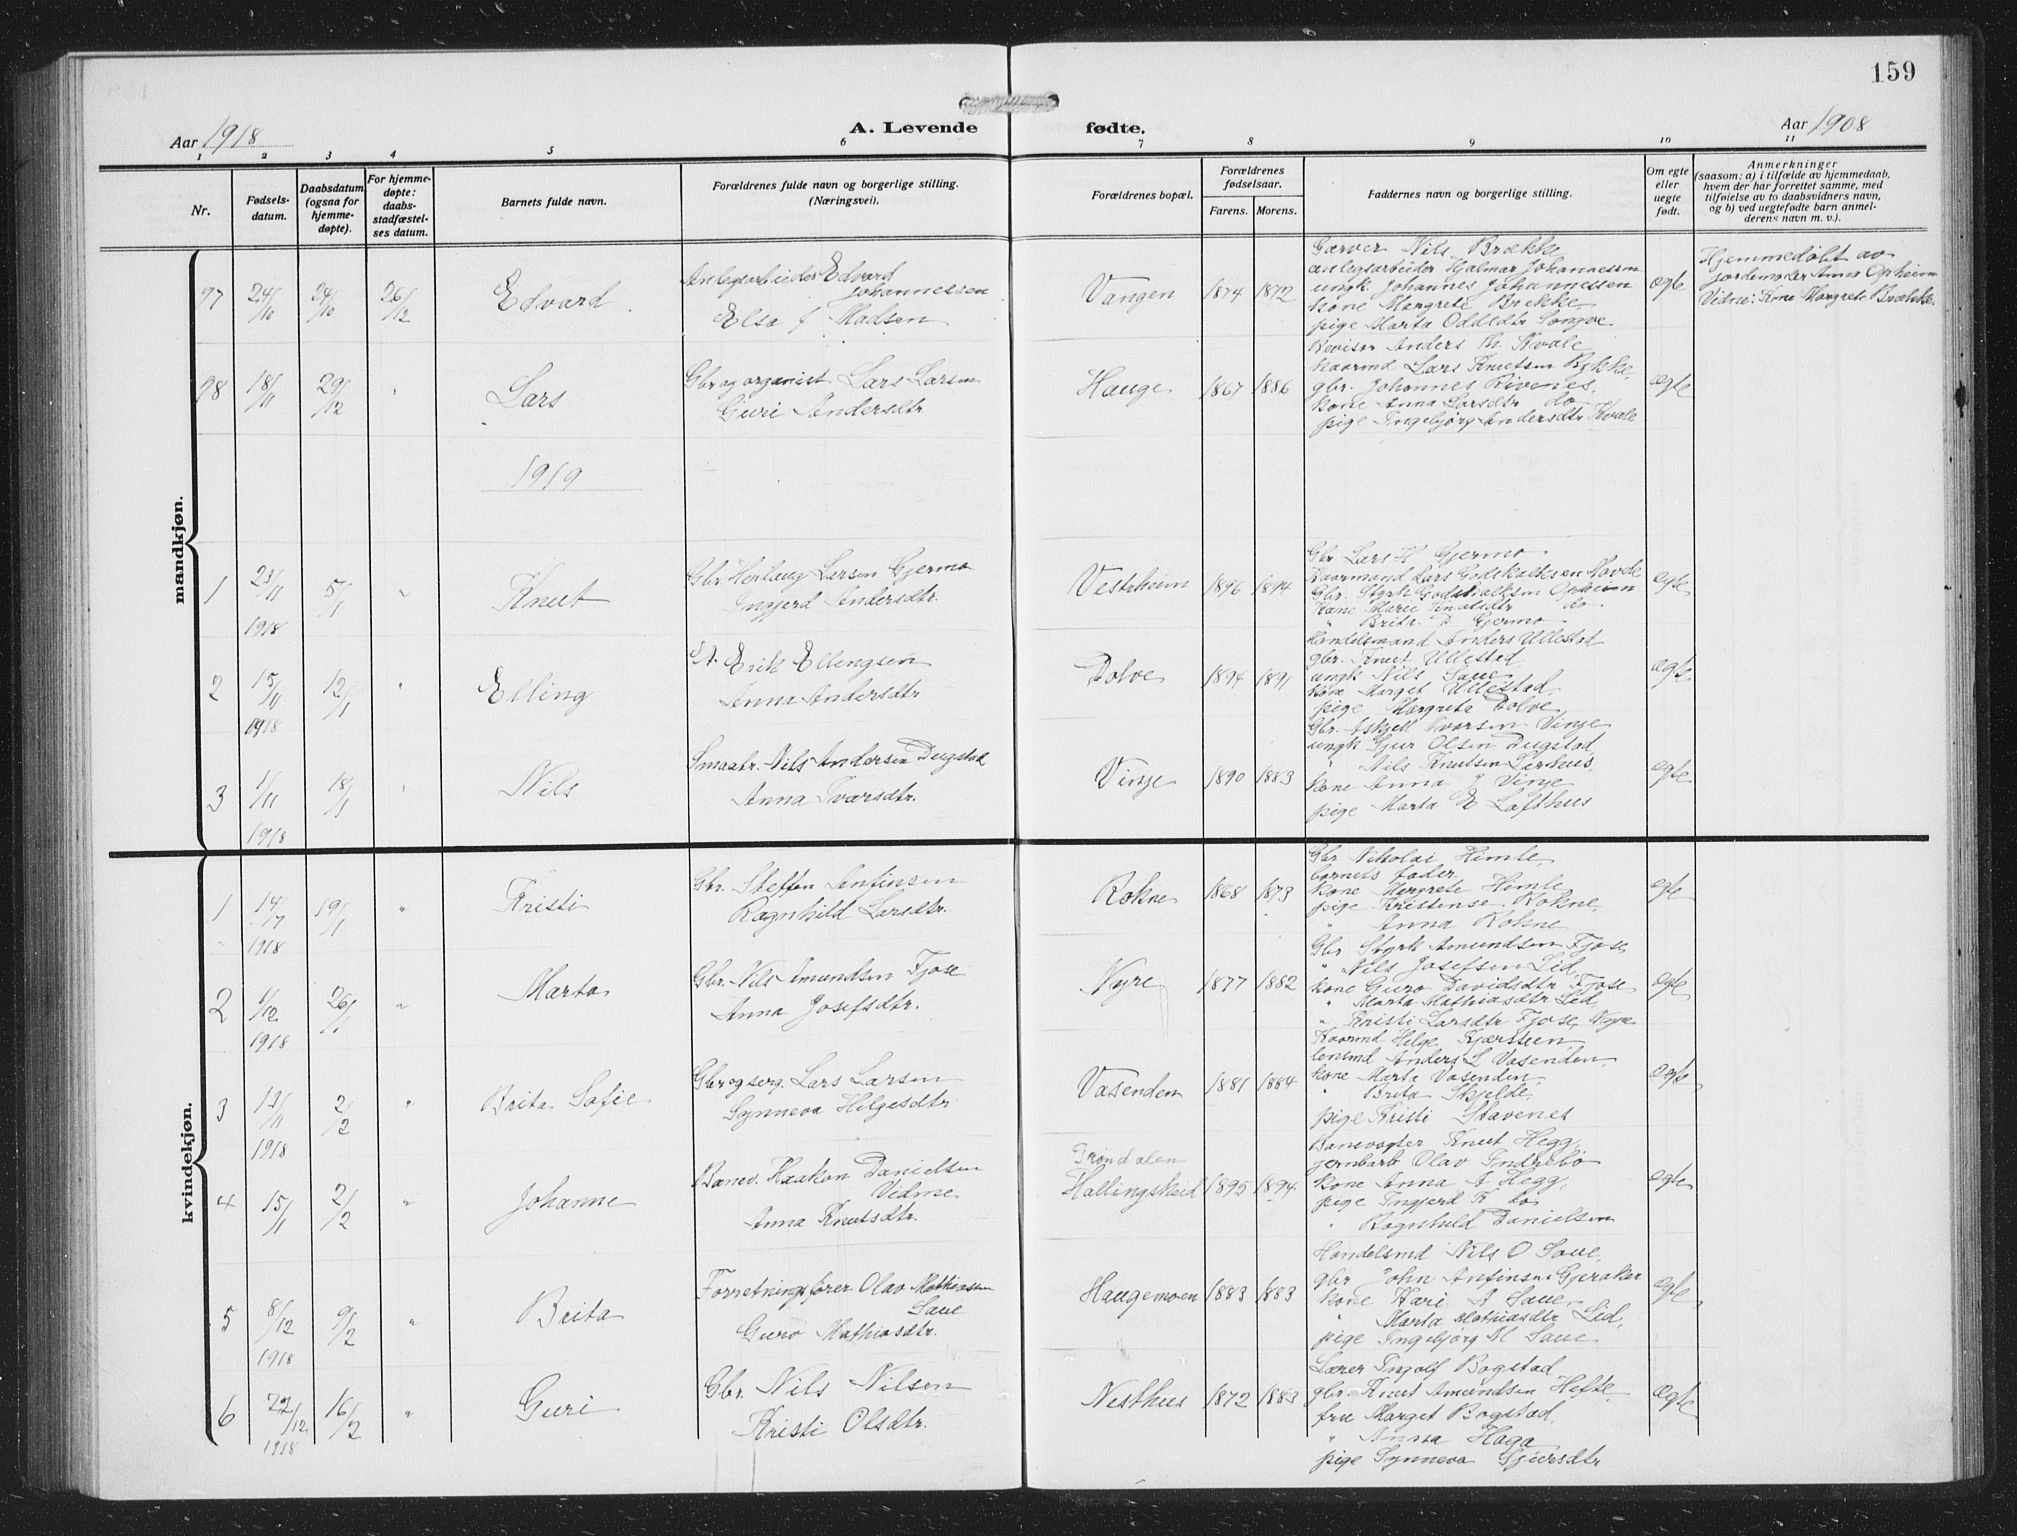 159
Aar 1918
A. Levende fødte.
Aar 1908
1 2 3 4 5 6 7 8 9 10 11
Nr.
Fødsels-
datum.
Daabsdatum
(ogsaa for
hjemme-
døpte).
For hjemme-
døpte:
daabs-
stadfæstel-
ses datum.
Barnets fulde navn.
Forældrenes fulde navn og borgerlige stilling.
(Næringsvei).
Forældrenes bopæl.
Forældrenes
fødselsaar.
Farens. Morens.
Faddernes navn og borgerlige stilling.
Om egte
eller
uegte
født.
Anmerkninger
(saasom: a) i tilfælde av hjemmedaab,
hvem der har forrettet samme, med
tilføielse av to daabsvidners navn,
og b) ved uegtefødte barn anmel-
derens navn m. v.).
mandkjøn.
97 24/10 24/10 26/12 Edvard
Anlegsarbeider Edvard
Johannessen
Elsa J Madsen
Vangen 1874 1872
Garver Nils Brække
anlegsarbeider Hjalmar Johannessen
ungk. Johannes Johannessen
kone Margrete Brekke
pige Marta Oddsdtr Songve
egte
Hjemmedøbt av
jordemoder Anna Opheim
Vidne: Kone Margrete Brække.
98 18/11 29/12 " Lars
Gbr og organist Lars Larsen
Guri Andersdtr
Hauge 1867 1886
Revisor Anders Th. Kvale
kaarmd Lars Knutsen Rykke,
gbr. Johannes Rivenes,
kone Anna Larsdtr do
pige Ingebjørg Andersdtr Kvale
egte
1919
1 23/11 1918 5/1 " Knut
Gbr. Herlaug Larsen Gjermo
Ingjerd Andersdtr.
Vestrheim 1896 1894
Gbr Lars H Gjermo.
Kaarmand Lars Godskalksen Hovde
Gbr. Styrk Godskalksen Opheim
Kone Mari Knutsdtr do.
" Brita Gjermo
egte
2 15/11 1918 12/1 " Elling
A. Erik Ellingsen
Anna Andersdtr
Dolve 1894 1891
Handelsmand Anders Ullestad
gbr. Knut Ullestad,
ungk Nils Saue
kone Marget Ullestad,
pige Margreta Dolve,
egte
3 1/11 1918 18/1 " Nils
Smaabr. Nils Andersen Dugstad
Anna Ivarsdtr.
Vinje 1890 1883
Gbr. Askjell Ivarsen Vinje
ungk Gjur Olsen Dugstad,
" Nils Knutsen Lirhus,
kone Anna J Vinje
pige Marta E Lofthus
egte
kvindekjøn.
1 14/7 1918 19/1 " Kristi
Gbr. Steffen Anfinsen
Ragnhild Larsdtr.
Rokne 1868 1873
Gbr Nikolai Himle,
barnets fader.
kone Margrete Himle
pige Kristense Rokne,
" Anna Rokne
egte
2 1/12 1918 26/1 " Marta
Gbr. Nils Amundsen Fjose
Anna Josefsdtr.
Nyre 1877 1882
Gbr Styrk Amundsen Fjose
" Nils Josefsen Lid,
kone Guro Davidsdtr Fjose
" Marta Mathiasdtr Lid,
" Kristi Larsdtr Fjose, Nyre
egte
3 12/11 1918 2/2 " Brita Sofie
Gbr og serg. Lars Larsen
Synneva Helgesdtr
Vasenden 1881 1884
Kaarmd Helge Kjærstien
lensmd Anders L Vasenden,
kone Marta Vasenden,
" Brita Skjelde,
pige Kristi Stavenes
egte
4 15/1 2/2 " Johanne
Banev. Haakon Danielsen
Vidme
Anna Knutsdtr.
Grøndalen
Hallingskeid 1895 1894
Banevogter Knut Hegg,
jernbarb Olav Indrebø
kone Anna A Hegg,
pige Ingjerd K do
" Ragnhild Danielsen
egte
5 8/12 1918 9/2 " Brita
Forretningsfører Olav Mathiassen
Saue
Guro Mathiasdtr.
Haugemoen 1883 1883
Handelsmd Nils O Saue,
gbr John Anfinsen Gjeraker
kone Kari A Saue,
" Marta Mathiasdtr Lid,
pige Ingebjørg M Saue
egte
6 22/12 1918 16/2 " Guri
Gbr. Nils Nilsen
Kristi Olsdtr.
Nesthus 1872 1883
Lærer Ingolf Bogstad
gbr. Knut Amundsen Hefte,
fru Marget Bogstad,
" Anna Haga
pige Synneva Gjursdtr
egte